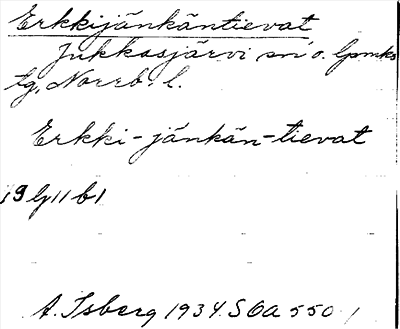 Erkkijänkäntievat
Jukkasjärvi sn o. lpmks
tg, Norrb. l.
Erkki-jänkän-tievat
A. Isberg 1934 SOA 550